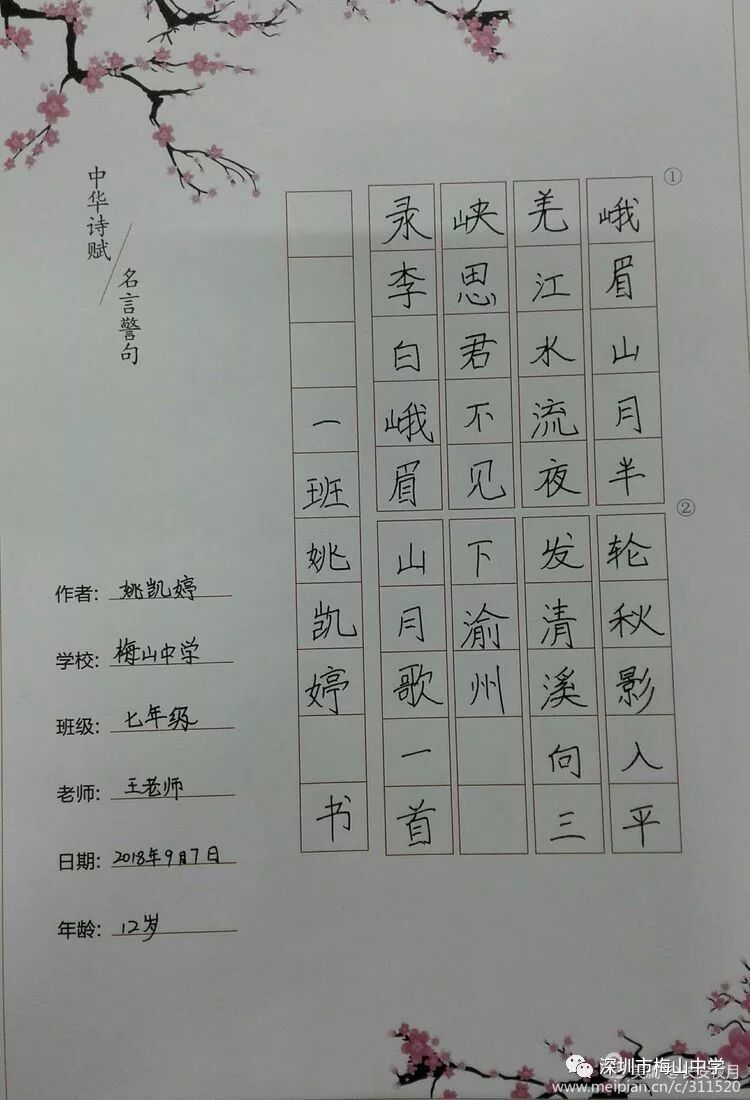 中华诗赋
名言警句
①
②
峨眉山月半轮秋影入平
羌江水流夜发清溪向三
峡思君不见下渝州
录李白峨眉山月歌一首
一班姚凯婷 书
作者: 姚凯婷
学校: 梅山中学
班级: 七年级
老师: 王老师
日期: 2018年9月7日
年龄: 12岁
深圳市梅山中学
www.meipian.cn/c/311520